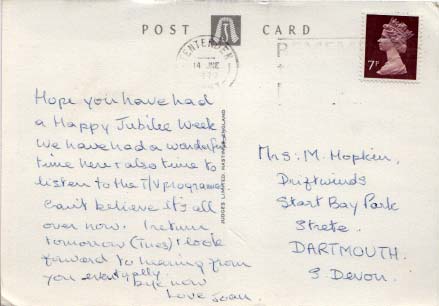 POST CARD
TENTERDEN
14 JNE
7P
Hope you have had
a Happy Jubilee Week
We have had a wonderful
time here & also time to
listen to the T/V programmes
Can't believe it's all
over now. I return
tomorrow (Tues) & look
forward to hearing from
you eventually
bye now
Love Joan
JUDGES LIMITED, HASTINGS, ENGLAND
Mrs. M. Hopkin,
Driftwinds
Start Bay Park
Strete.
DARTMOUTH.
S Devon.